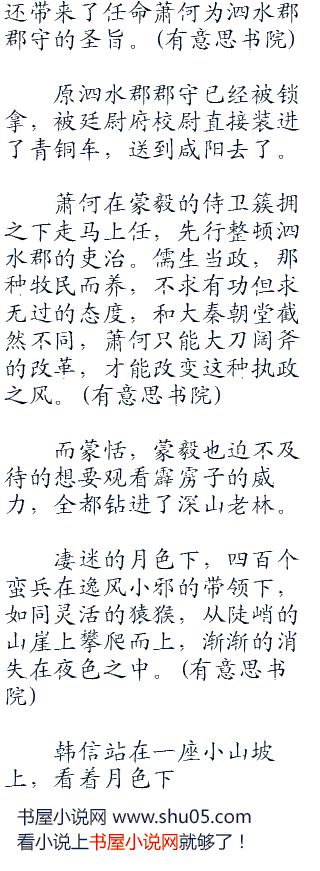 还带来了任命萧何为泗水郡
郡守的圣旨。(有意思书院)
原泗水郡郡守已经被锁
拿，被廷尉府校尉直接装进
了青铜车，送到咸阳去了。
萧何在蒙毅的侍卫簇拥
之下走马上任，先行整顿泗
水郡的吏治。儒生当政，那
种牧民而养，不求有功但求
无过的态度，和大秦朝堂截
然不同，萧何只能大刀阔斧
的改革，才能改变这种执政
之风。(有意思书院)
而蒙恬，蒙毅也迫不及
待的想要观看霹雳子的威
力，全都钻进了深山老林。
凄迷的月色下，四百个
蛮兵在逸风小邪的带领下，
如同灵活的猿猴，从陡峭的
山崖上攀爬而上，渐渐的消
失在夜色之中。(有意思书
院)
韩信站在一座小山坡
上，看着月色下
书屋小说网 www.shu05.com
看小说上书屋小说网就够了！